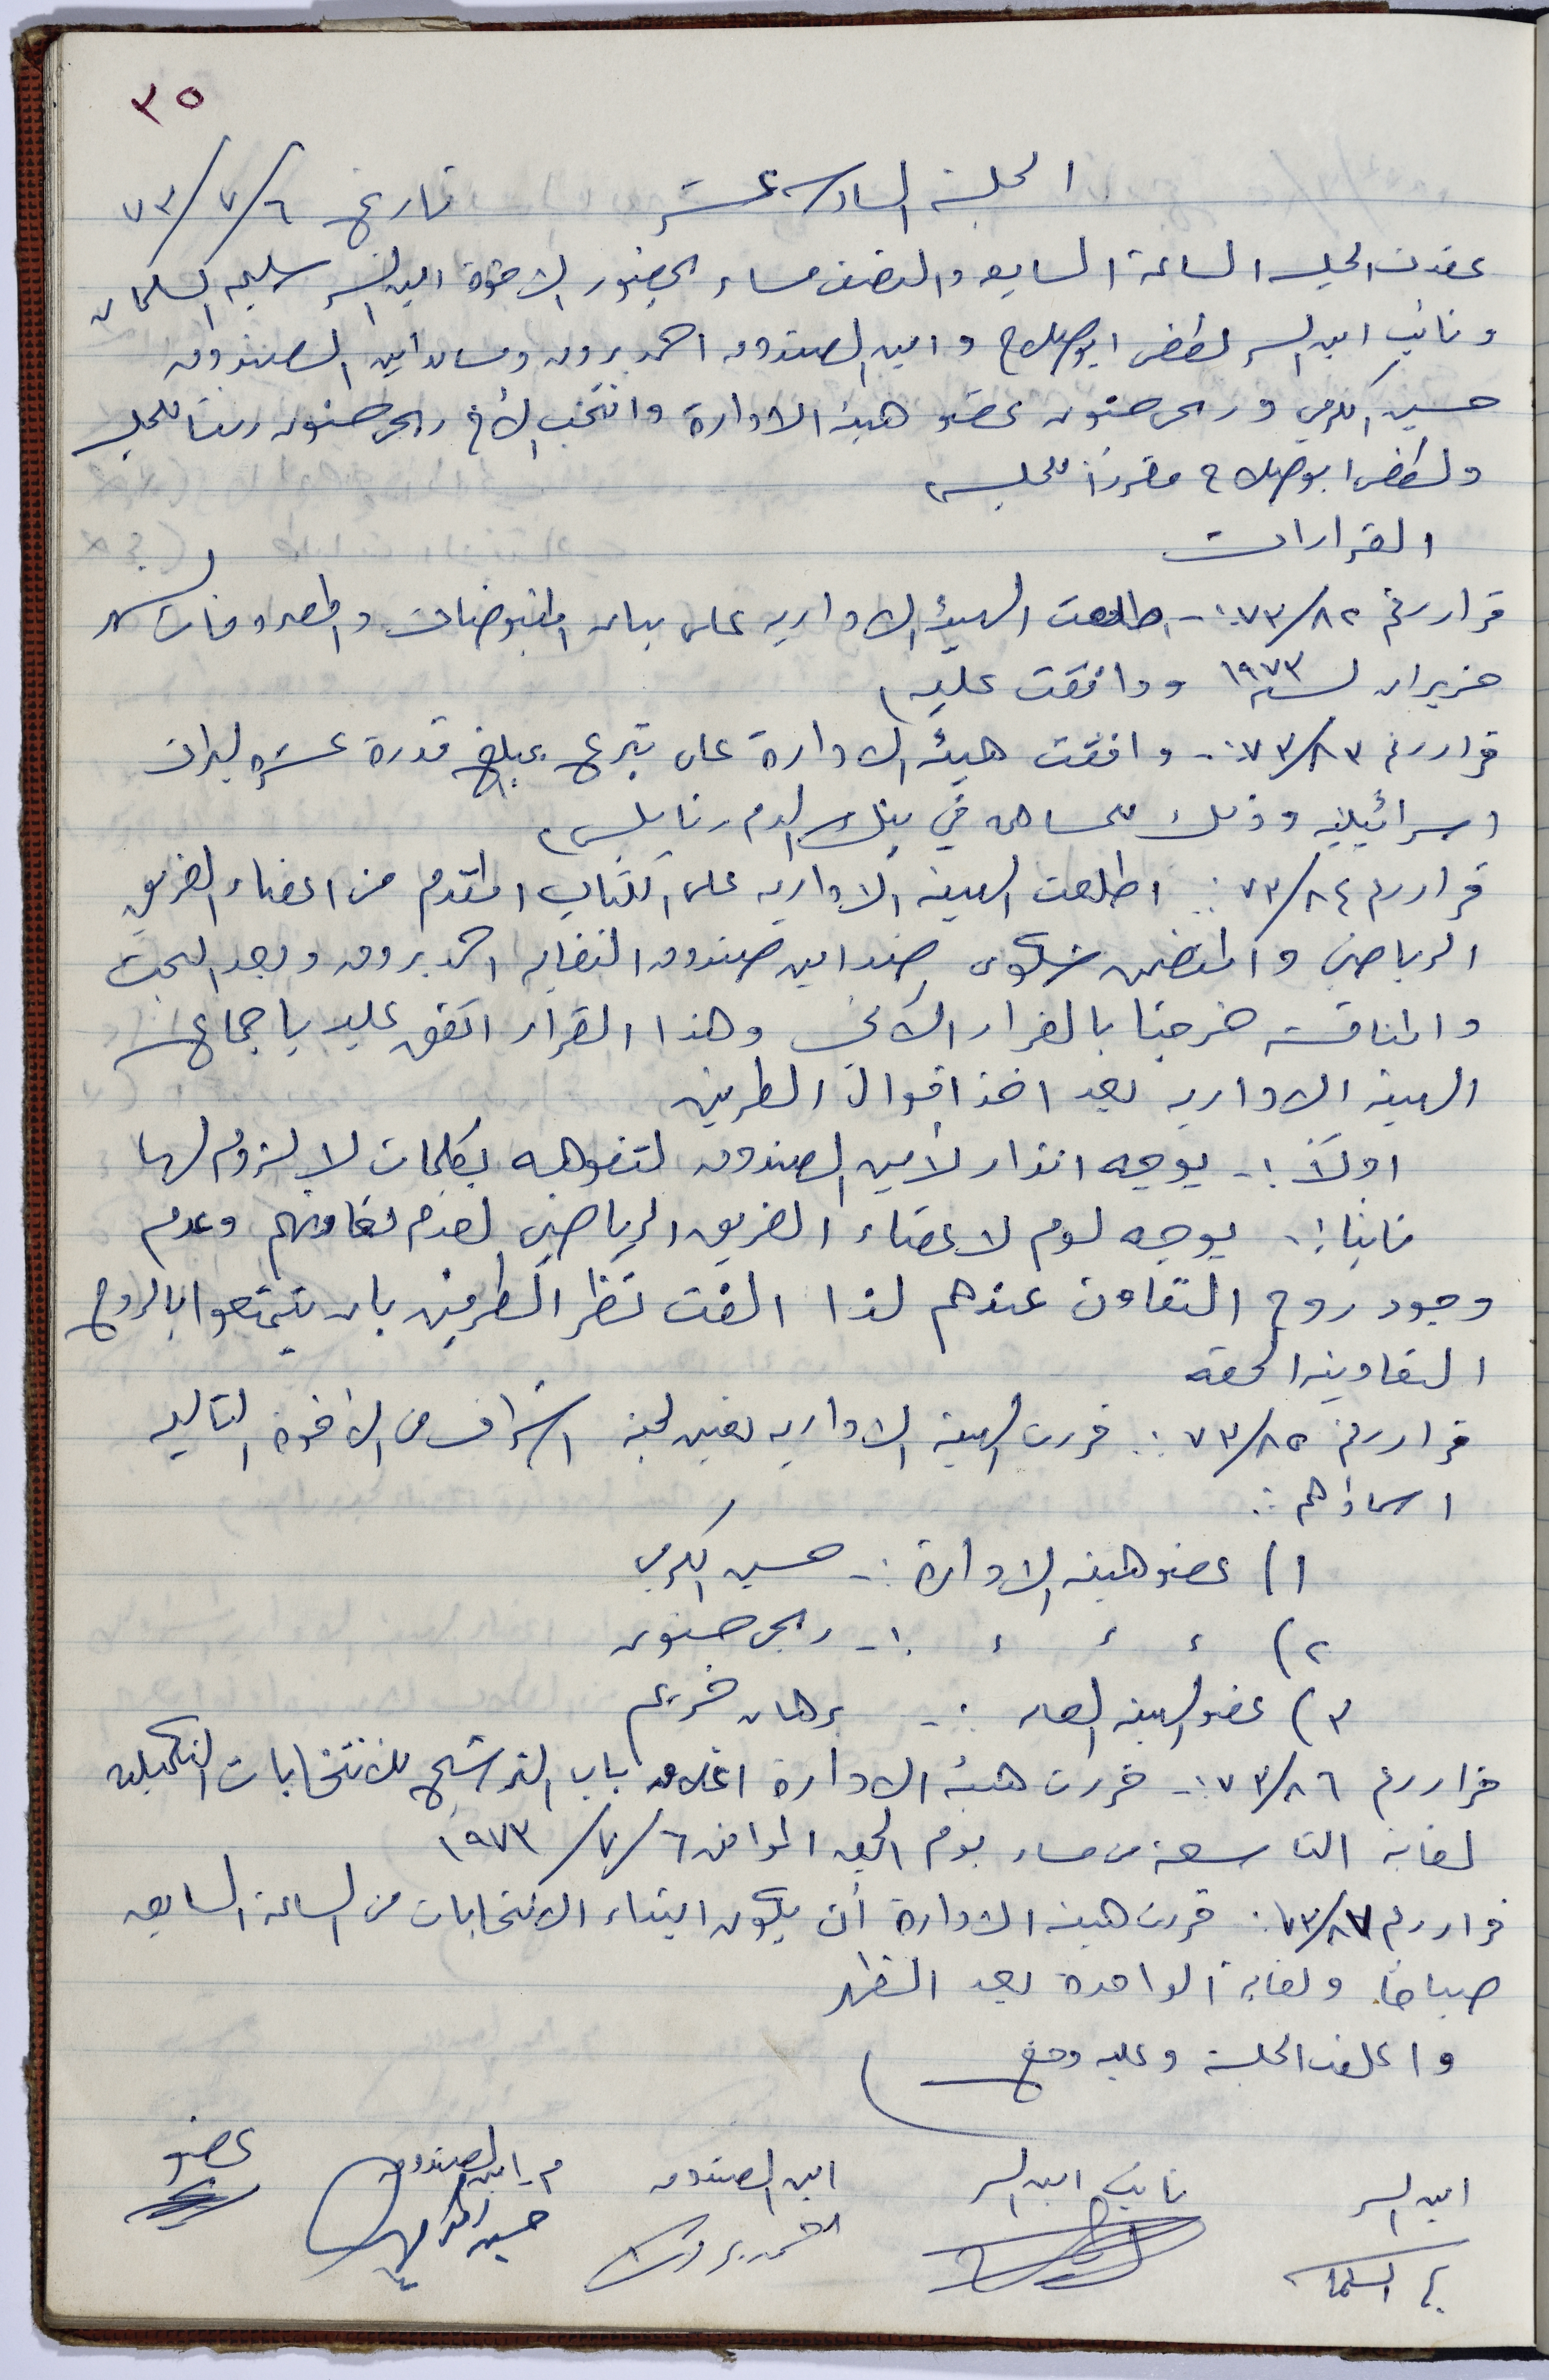 ٣٥
الجلسة السادسة عشر تاريخ ٦/٧/٧٣
عقدت الجلسة الساعة السابعه والنصف مساء بحضور الاخوة امين السر سليم السلمان
ونائب امين السر لطفي ابوصلاح وامين الصندوق احمد بروق ومساعد امين الصندوق
حسين اكرمي وربحي حنون عضو هيئة الادارة وانتخب الأخ ربحي حنون رئيسا للجلسه
ولطفي ابوصلاح مقررا للجلسه
القرارات
قرار رقم ٧٣/٨٢ :- اطلعت الهيئه الاداريه على بيان المقبوضات والمصروفات لشهر
حزيران لسنة ١٩٧٣ ووافقت عليه
قرار رقم ٧٣/٨٣ :- وافقت هيئة الادارة على تبرع بمبلغ قدرة عشرة ليرات
اسرائيلية وذلك للمساهمه في بنك الدم نابلس
قرار رقم ٧٣/٨٤ : اطلعت الهيئة الاداريه على الكتاب المقدم من اعضاء الفريق
الرياضي والمتضمن شكوى ضد امين صندوق النقابه احمد بروق وبعد البحث
والمناقشه خرجنا بالقرار الآتي وهذا القرار اتفق عليه باجماع
الهيئة الاداريه بعد اخذ اقوال الطرفين
اولاً :- يوجه انذار لأمين الصندوق لتفوهه بكلمات لا لزوم لها
ثانيا :- يوجه لوم لاعضاء الفريق الرياضي لعدم تعاونهم وعدم
وجود روح التعاون عندهم لذا الفت نظر الطرفين بان يتمتعوا بالروح
التعاونية الحقه
قرار رقم ٧٣/٨٥ : قررت الهيئة الاداريه تعيين لجنة اشراف من الاخوة التاليه
اسماؤهم :
١) عضو هيئة الادارة :- حسين اكرمي
٢) ، ، ، :- ربحي حنون
٣) عضو الهيئة العامه :- برهان خريم
قرار رقم ٧٣/٨٦ :- قررت هيئة الادارة اغلاق باب الترشيح للانتخابات التكميليه
لغاية التاسعة من مساء يوم الجمعه الموافق ٦/٧/١٩٧٣
قرار رقم ٧٣/٨٧ : قررت هيئة الادارة أن يكون ابتداء الانتخابات من الساعة السابعه
صباحا ولغاية الواحدة بعد الظهر
واغلقت الجلسة وعليه وقع
امين السر نائب امين السر امين الصندوق م. امين الصندوق عضو
السلمان احمد بروق حسين اكرمي